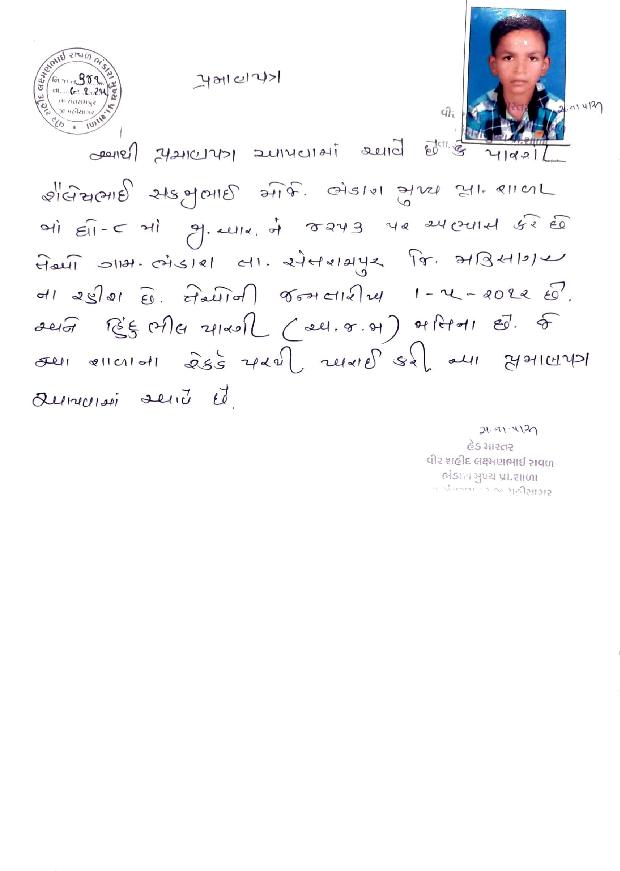 વીર શહીદ લક્ષ્મણભાઈ રાવળ ભંડારા મુખ્ય પ્રા.શાળા
તા. સંતરામપુર
જી મહીસાગર
પ્રમાણપત્ર
આથી પ્રમાણપત્ર આપવામાં આવે છે કે પારગી
શૈલેષભાઈ મોજે. ભંડારા મુખ્ય પ્રા. શાળા
માં ધો-૮ માં જી.આર. નં ૪૨૫૩ પર અભ્યાસ કરે છે
તેઓ ગામ. ભંડારા તા. સંતરામપુર જિ. મહિસાગર
ના રહીશ છે. તેઓની જન્મતારીખ ૧-૫-૨૦૧૨ છે.
અને હિંદુ ભીલ પારગી (અ.જ.જ) જાતિના છે. જે
આ શાળાના રેકર્ડ પરથી ખરાઈ કરી આ પ્રમાણપત્ર
આપવામાં આવે છે.
હેડમાસ્તર
વીર શહીદ લક્ષ્મણભાઈ રાવળ
ભંડારા મુખ્ય પ્રા.શાળા
મહીસાગર